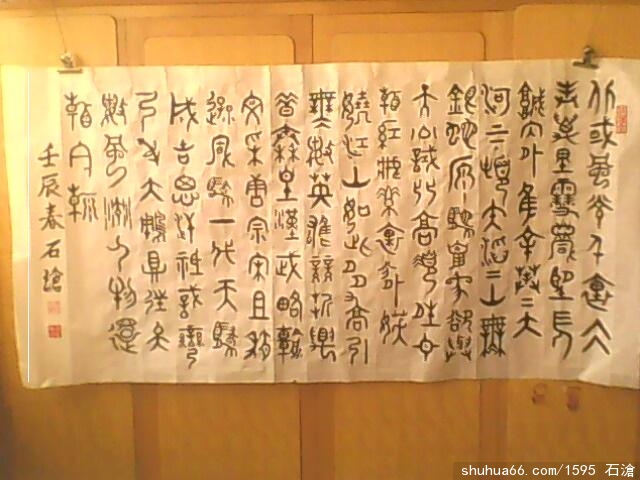 北國風光千里冰
封萬里雪飄望長
城內外惟餘莽〻大
河上下頓失滔〻山舞
銀蛇原馳蠟象欲與
天公試比高須晴日
看紅裝素裹分外妖
嬈江山如此多嬌引
無數英雄競折腰
惜秦皇漢武略輸
文采唐宗宋祖稍
遜風騷一代天驕
成吉思汗只識彎
弓射大雕俱往矣
數風流人物還
看今朝
壬辰春石滄
shuhua66.com/1595 石滄